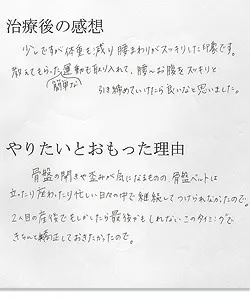 治療後の感想
少しですが体重も減り腰まわりがスッキリした印象です。
教えてもらった運動も取り入れて、腰やお腹をスッキリと
(簡単な)
引き締めていけたら良いなと思いました。
やりたいとおもった理由
骨盤の開きや歪みが気になるものの、骨盤ベルトは
立ったり座ったり忙しい日々の中で継続してつけられなかったので。
2人目の産後でもしかしたら最後かもしれないこのタイミングで
きちんと矯正しておきたかったので。